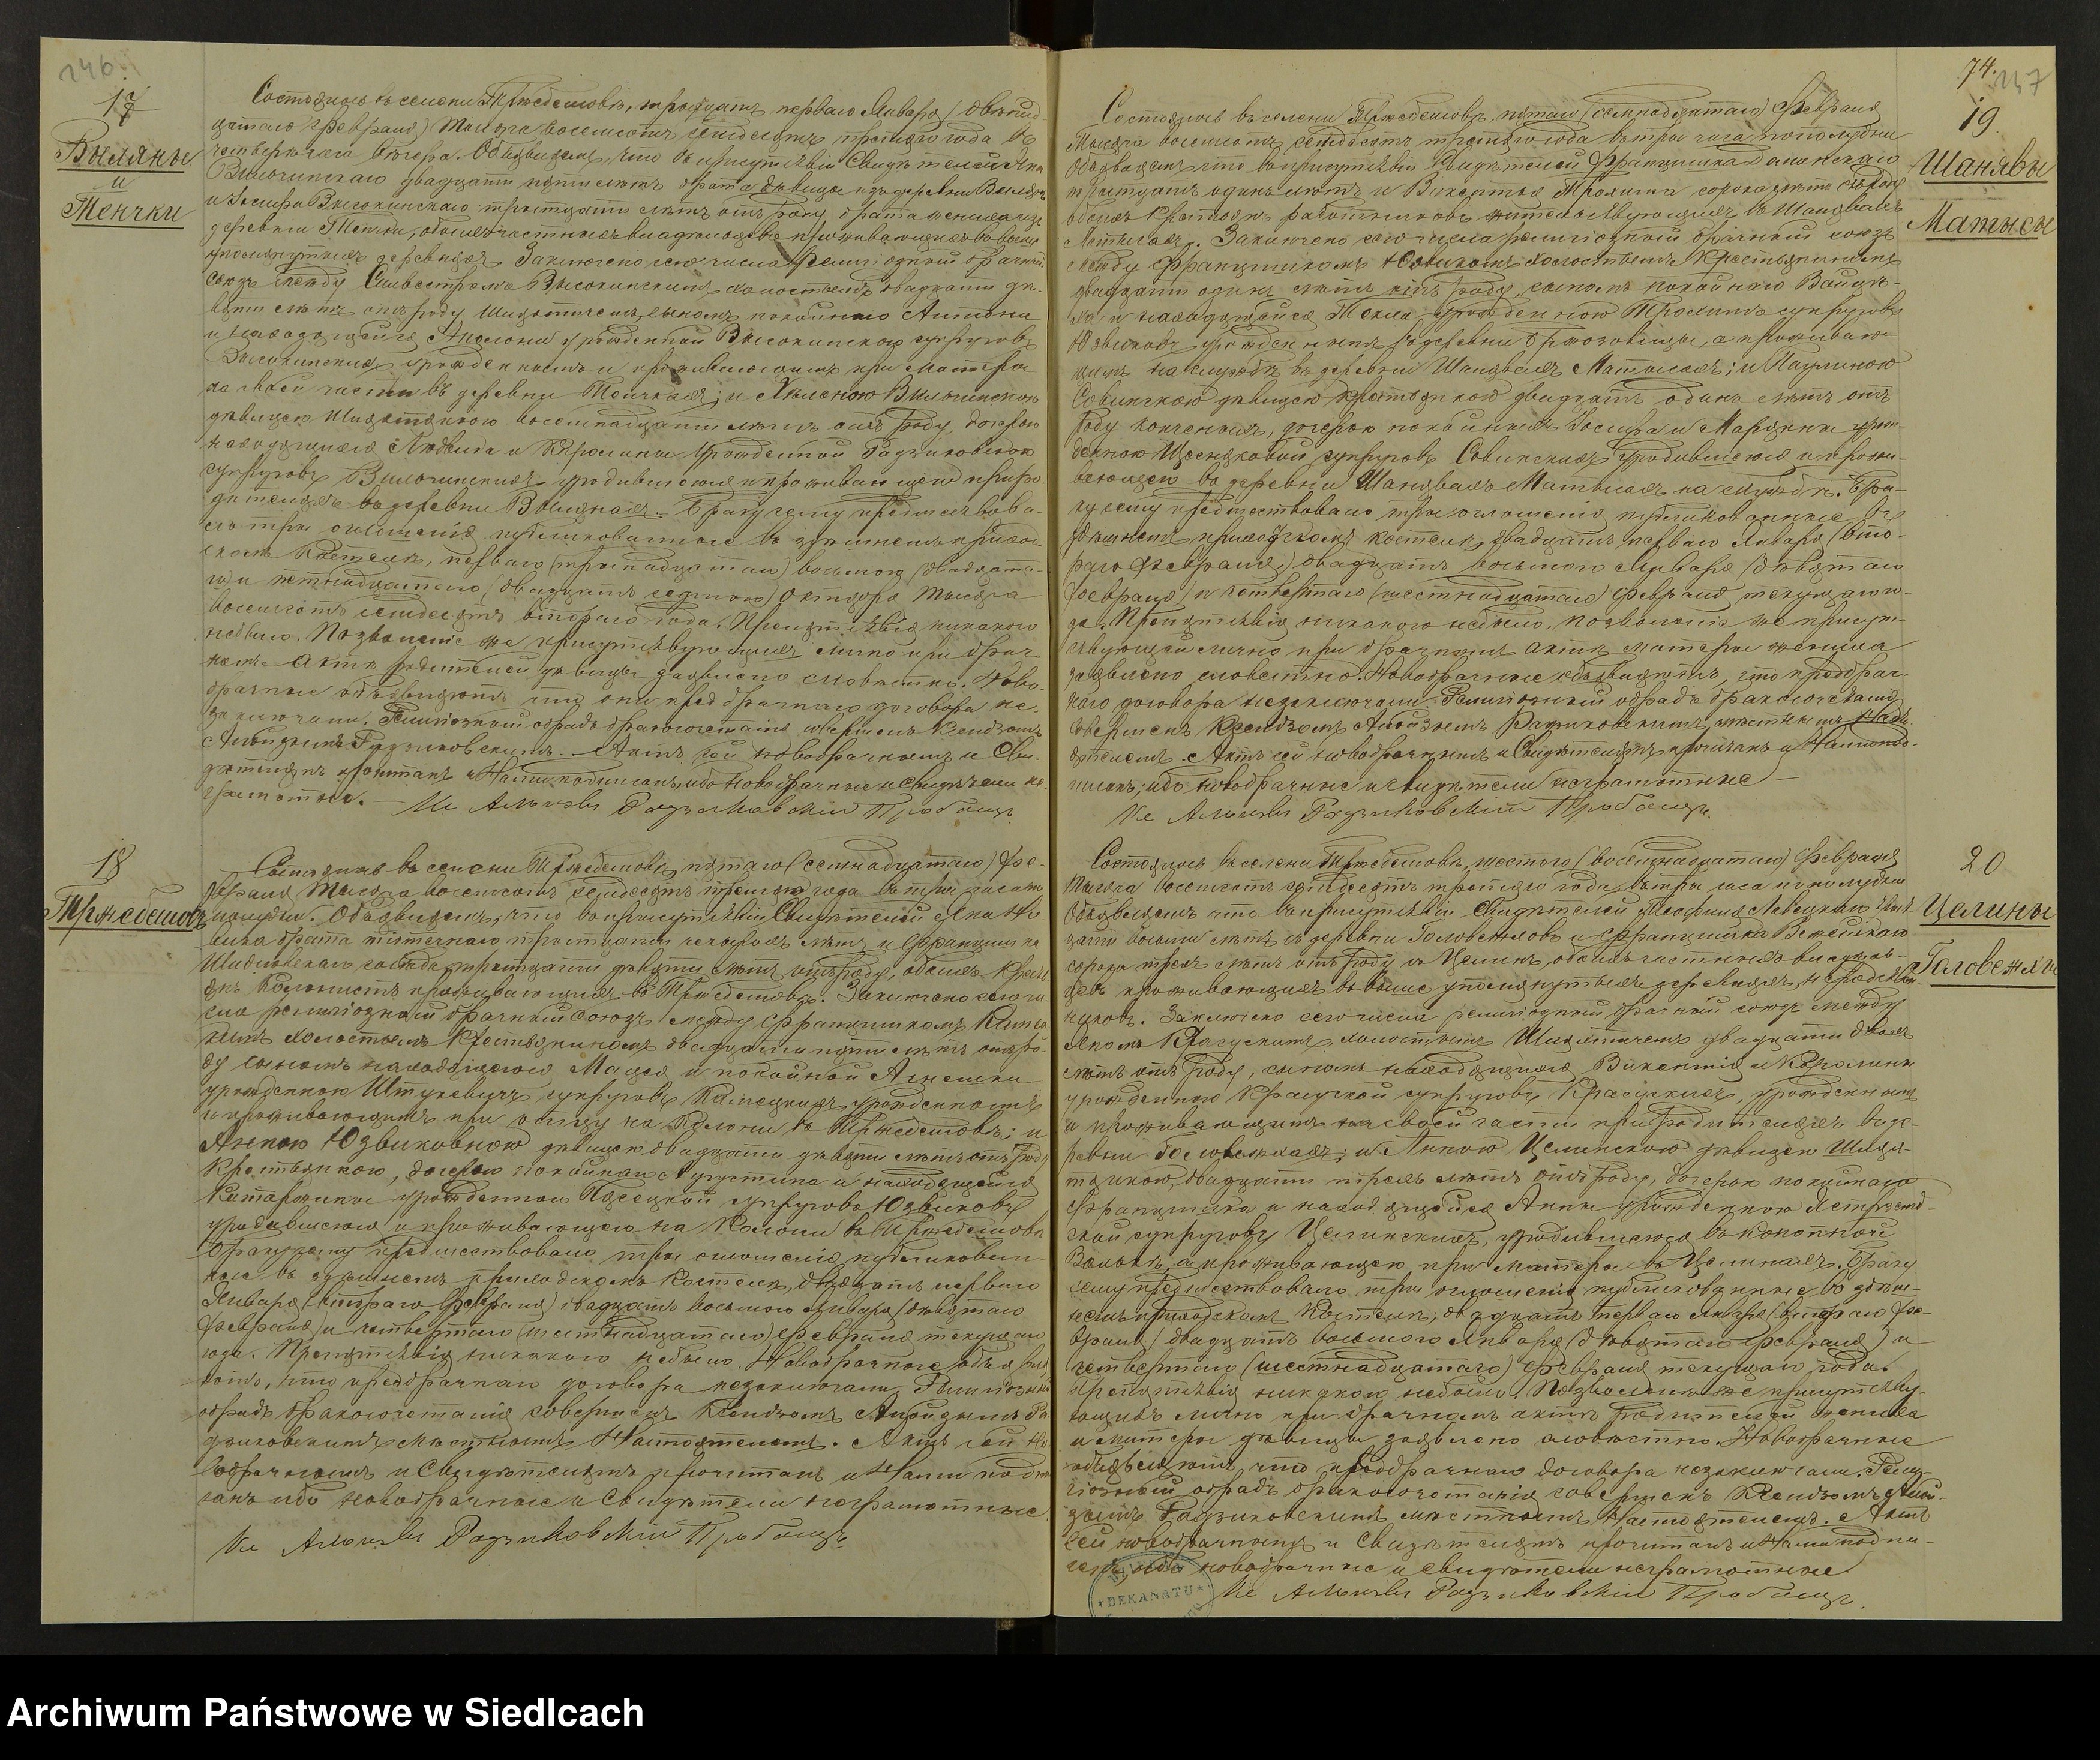 146
17
Выляны
и
Тенчки
Состоялось въ селени Тржебешовѣ, тридцать перваго Января (двѣнад-
цатаго Февраля) Тысяча восемьсотъ семьдесятъ третьяго года въ
четыре часа вечера. Объявляемъ, что въ присутствіи Свидѣтелей
двадцати пяти лѣтъ брата дѣвицы изъ деревни
и Іосифа Высокинскаго тридцати лѣтъ отъ роду, брата жениха изъ
деревни Тенчки, обоихъ частныхъ владѣльцевъ проживающихъ въ выше
упомянутыхъ деревняхъ. Заключено сего числа религіозный брачный
союзъ между Сильвестромъ Высокинскимъ холостымъ двадцати де-
вяти лѣтъ отъ роду Шляхтичемъ, сыномъ покойнаго Антона
и находящейся урожденной Высокинской супруговъ
Высокинскихъ, урожденнымъ и проживающимъ при матери
на своей части въ деревни Тенчкахъ; и
дѣвицею Шляхтянкою восемнадцати лѣтъ отъ роду, дочерью
находящихся Людвика и Каролины урожденной Радзиковской
супруговъ родившеюся и проживающею при ро-
дителяхъ въ деревни Вылянахъ. Браку сему предшествова-
ло три оглашенія публикованные въ здешнемъ приход-
скомъ Костелѣ, перваго (тринадцатаго) восьмого (двадцата-
го) и пятнадцатаго (двадцать седьмого) Октября Тысяча
восемьсотъ семьдесятъ втораго года. Препятствія никакого
небыло. Позволеніе же присутствующихъ лично при брач-
номъ Актѣ родителей дѣвицы заявлено словестно. Ново-
брачные объявляютъ что они предбрачнаго договора не
заключали. Религіозный обрядъ бракосочетанія совершенъ Ксендзомъ
Алоизымъ Радзиковскимъ. Актъ сей новобрачнымъ и Сви-
дѣтелямъ прочитанъ и Нами подписанъ, ибо новобрачные и свидѣтели не-
грамотны.
Кс Алоизы Радзиковскій Пробощь.
18
Тржебешовъ
Состоялось въ селени Тржебешовѣ, пятаго (семнадцатаго) Фе-
враля Тысяча восемьсотъ семьдесятъ третьяго года въ три часа по
полудни. Объявляемъ, что въ присутствіи Свидѣтелей
брата тридцати четырехъ лѣтъ и Францишка
тридцати девяти лѣтъ отъ роду, обоихъ Кресть-
янъ Колонистъ проживающихъ въ Тржебешовѣ. Заключено сего чи-
сла религіозный брачный союзъ между Францишкомъ
холостымъ Крестьяниномъ двадцати пяти лѣтъ отъ ро-
ду сыномъ находящагося Мацея и покойной Агнешки
урожденной супруговъ урожденнымъ
и проживающимъ при отцу на Колоніи въ Тржебешовѣ; и
Анною Юзвиковною дѣвицею двадцати девяти лѣтъ отъ роду
Крестьянкою, дочерью покойнаго Августина и находящейся
Катаржины урожденной супруговъ Юзвиковъ
уродившеюся и проживающею на Колоніи въ Тржебешовѣ
Браку сему предшествовало три оглашенія публикован-
ные въ здѣшнемъ приходскомъ Костелѣ, двадцать перваго
Января (втораго Февраля) двадцать восьмого Января (девятаго
Февраля) и четвертаго (шестнадцатаго) Февраля текущаго
года. Препятствія никакого небыло. Новобрачные объявля-
ютъ, что предбрачнаго договора незаключали. Религіозный
обрядъ бракосочетанія совершенъ Ксендзомъ Алоизымъ Ра-
дзиковскимъ мѣстнымъ Настоятелемъ. Актъ сей но-
вобрачнымъ и Свидѣтелямъ прочитанъ и Нами подпи-
санъ ибо новобрачные и Свидѣтели неграмотные.
Кс Алоизы Радзиковскій Пробощь
74.
147
19
Шанявы
Матысы
Состоялось въ селени Тржебешовѣ, пятаго (семнадцатаго) Февраля
Тысяча восемьсотъ семьдесятъ третьяго года въ три часа пополудни
Объявляемъ что въ присутствіи Свидѣтелей Францишка
тридцать одинъ лѣтъ и Викентія сорока лѣтъ отъ роду
обоихъ Крестьянъ работниковъ жительствующихъ въ Шанявахъ
Матысахъ. Заключено сего числа религіозный брачный союзъ
между Францишкомъ Юзвикомъ холостымъ Крестьяниномъ
двадцати одинъ лѣтъ отъ роду, сыномъ покойнаго Войцѣ-
ха и находящейся Текли урожденною супруговъ
Юзвиковъ урожденнымъ въ деревни а проживаю-
щимъ на службѣ въ деревни Шанявахъ Матысахъ; и Паулиною
Совинскою дѣвицею крестьянкою двадцать одинъ лѣтъ отъ
роду конченыхъ, дочерью покойныхъ Іосифа и Марьянны урож-
денною супруговъ Совинскихъ, уродившеюся и прожи-
вающею въ деревни Шанявахъ Матысахъ на службѣ. Бра-
ку сему предшествовало три оглашенія публикованные въ
здѣшнемъ приходскомъ костелѣ, двадцать перваго Января (вто-
раго Февраля) двадцать восьмого Января (девятаго
Февраля) и четвертаго (шестнадцатаго) Февраля текущаго го-
да. Препятствія никакого небыло. Позволеніе же присут-
ствующей лично при брачномъ актѣ матери жениха
заявлено словестно. Новобрачные объявляютъ, что предбрач-
наго договора незаключали. Религіозный обрядъ бракосочетанія
совершенъ Ксендзомъ Алоизымъ Радзиковскимъ мѣстнымъ Насто-
ятелемъ. Актъ сей новобрачнымъ и Свидѣтелямъ прочитанъ и Нами под-
писанъ; ибо новобрачные и свидѣтели неграмотные
Кс Алоизы Радзиковскій Пробощь.
20
Целины
Головежхи
Состоялось въ селени Тржебешовѣ, шестого (восемнадцатаго) Февраля
Тысяча восемьсотъ семьдесятъ третьяго года, въ три часа по полудни
Объявляемъ что въ присутствіи Свидѣтелей Теофиля
восьми лѣтъ съ деревни и Францишка
сорока трехъ лѣтъ отъ роду въ Целинѣ, обоихъ частныхъ владѣль-
цевъ проживающихъ въ выше упомянутыхъ деревняхъ,
Заключено сего числа религіозный брачный союзъ между
Яномъ Красускимъ холостымъ Шляхтичемъ двадцати двохъ
лѣтъ отъ роду, сыномъ находящихся Викентія и Каролины
урожденною Красуской супруговъ Красускихъ, урожденнымъ
и проживающимъ на своей части при родителяхъ въ де-
ревни Головежхахъ; и Анною Целинскою дѣвицею Шлях-
тянкою, двадцати трехъ лѣтъ отъ роду, дочерью покойнаго
Францишка и находящейся Анны урожденною Ястржемб-
ской супруговъ Целинскихъ, уродившеюся въ
а проживающею при матери въ Целинахъ. Браку
сему предшествовало три оглашенія публикованные въ здѣш-
немъ приходскомъ Костелѣ, двадцать перваго Января (втораго Фе-
враля) двадцать восьмого Января (девятаго Февраля) и
четвертаго (шестнадцатаго) Февраля текущаго года.
Препятствія никакого небыло. Позволеніе же присутству-
ющихъ лично при брачномъ актѣ родителей жениха
и матери дѣвицы заявлено словестно. Новобрачные
объявляютъ что предбрачнаго договора незаключали. Рели-
гіозный обрядъ бракосочетанія совершенъ Ксендзомъ Алои-
зымъ Радзиковскимъ мѣстнымъ Настоятелемъ. Актъ
сей новобрачнымъ и Свидѣтелямъ прочитанъ и Нами подпи-
санъ, ибо новобрачные и свидѣтели неграмотные
Кс Алоизы Радзиковскій Пробощь.
DEKANATU
Archiwum Państwowe w Siedlcach